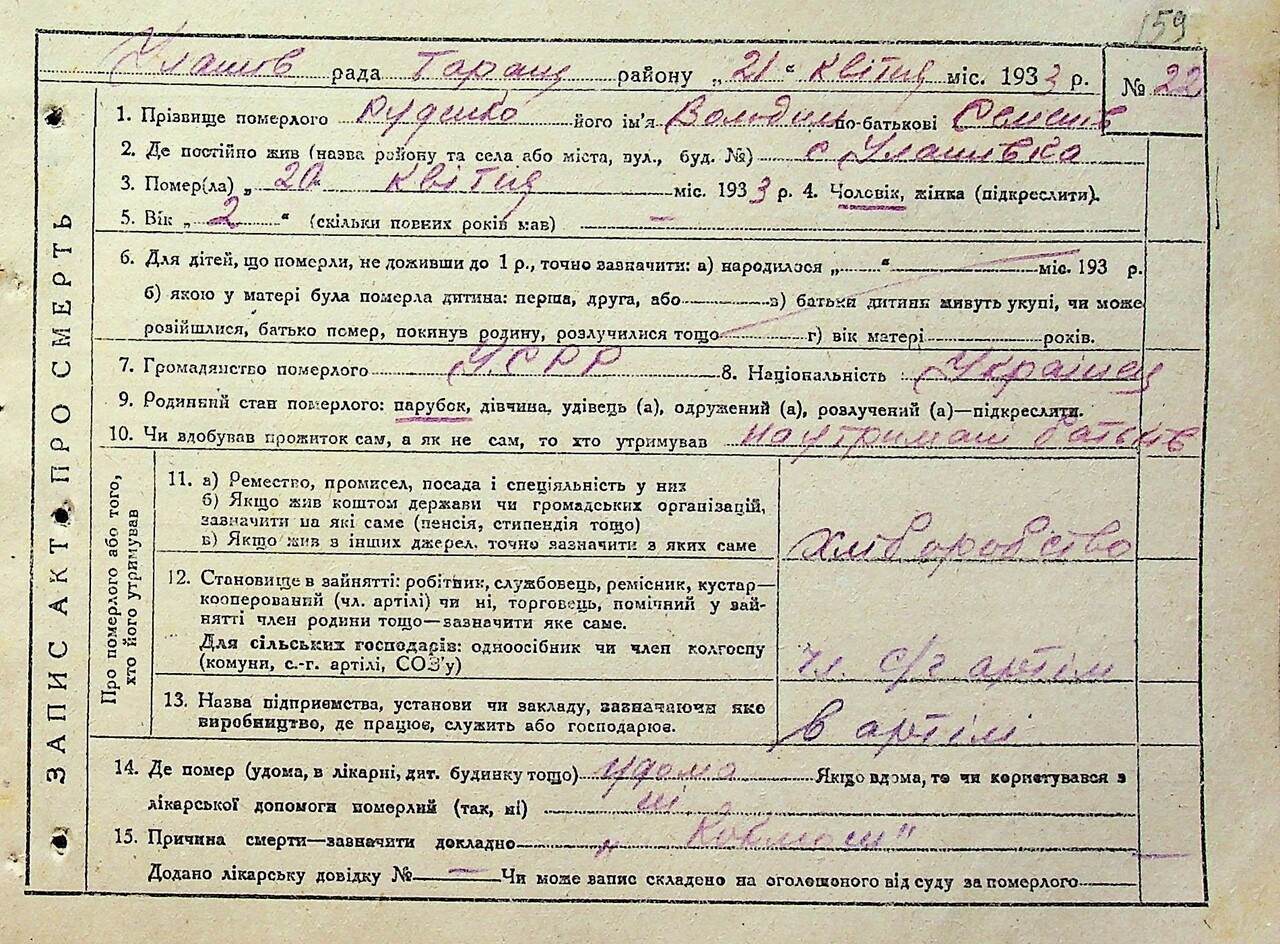 159
Улашів рада Таращ району „21“ квітня міс. 1933 р. № 22
ЗАПИС АКТ ПРО СМЕРТЬ
1. Прізвище померлого Руденко його ім'я Володим по-батькові Семенів
2. Де постійно жив (назва району та села або міста, вул., буд. №) с Улашівка
3. Помер(ла) „ 20 квітня міс. 1933 р. 4. Чоловік, жінка (підкреслити).
5. Вік „ 2 “ (скільки повних років мав) —
6. Для дітей, що померли, не доживши до 1 р., точно зазначити: а) народилося „ “ міс. 193 р.
б) якою у матері була померла дитина: перша, друга, або в) батьки дитини живуть укупі, чи може
розійшлися, батько помер, покинув родину, розлучилися тощо г) вік матері рохів.
7. Громадянство померлого УСРР 8. Національність Українец
9. Родинний стан померлого: парубок, дівчина, удівець (а), одружений (а), розлучений (а)—підкреслити.
10. Чи вдобував прожиток сам, а як не сам, то хто утримував на утриман батьків
Про померлого або того,
хто його утримував
11. а) Ремество, промисел, посада і спеціяльність у них
б) Якщо жив коштом держави чи громадських організацій,
зазначити на які саме (пенсія, стипендія тощо)
в) Якщо жив з інших джерел, точно зазначити з яких саме
хліборобство
12. Становище в зайнятті: робітник, службовець, ремісник, кустар—
кооперований (чл. артілі) чи ні, торговець, помічний у зай-
нятті член родини тощо—зазначити яке саме.
Для сільських господарів: одноосібник чи член колгоспу
(комуни, с.-г. артілі, СОЗ'у)
чл. с/г артілі
13. Назва підприємства, установи чи закладу, зазначаючи яке
виробництво, де працює, служить або господарює.
в артілі
14. Де помер (удома, в лікарні, дит. будинку тощо) удома Якщо вдома, то чи користувався з
лікарської допомоги померлий (так, ні) ні
15. Причина смерти—зазначити докладно
Додано лікарську довідку № — Чи може запис складено на оголошеного від суду за померлого